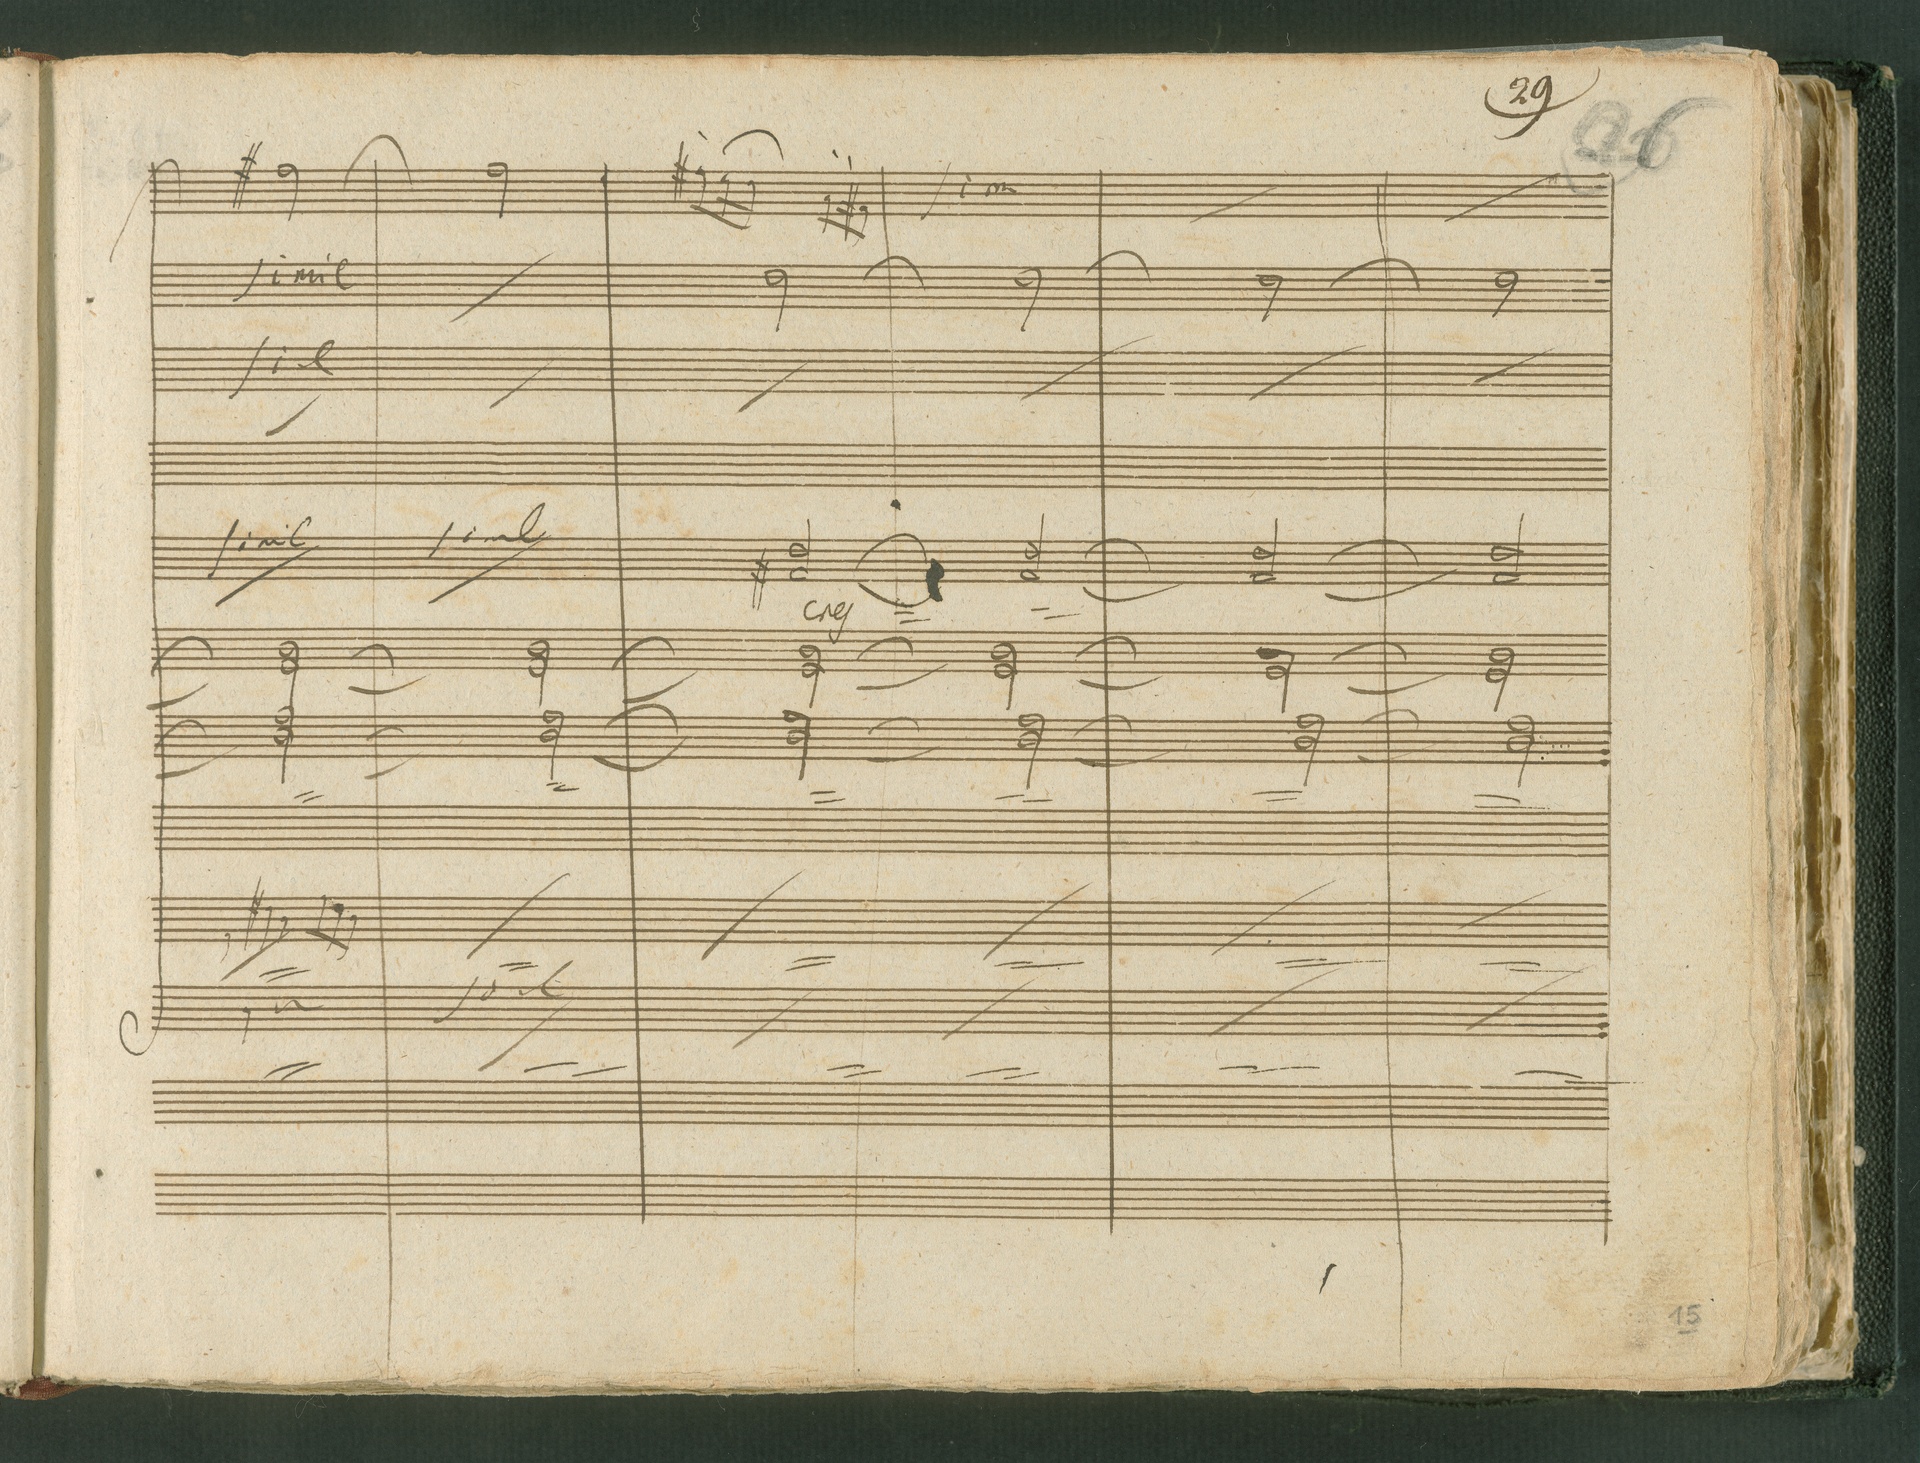 29
26
sim
simil
sil
simil simil
cresc
simil
15